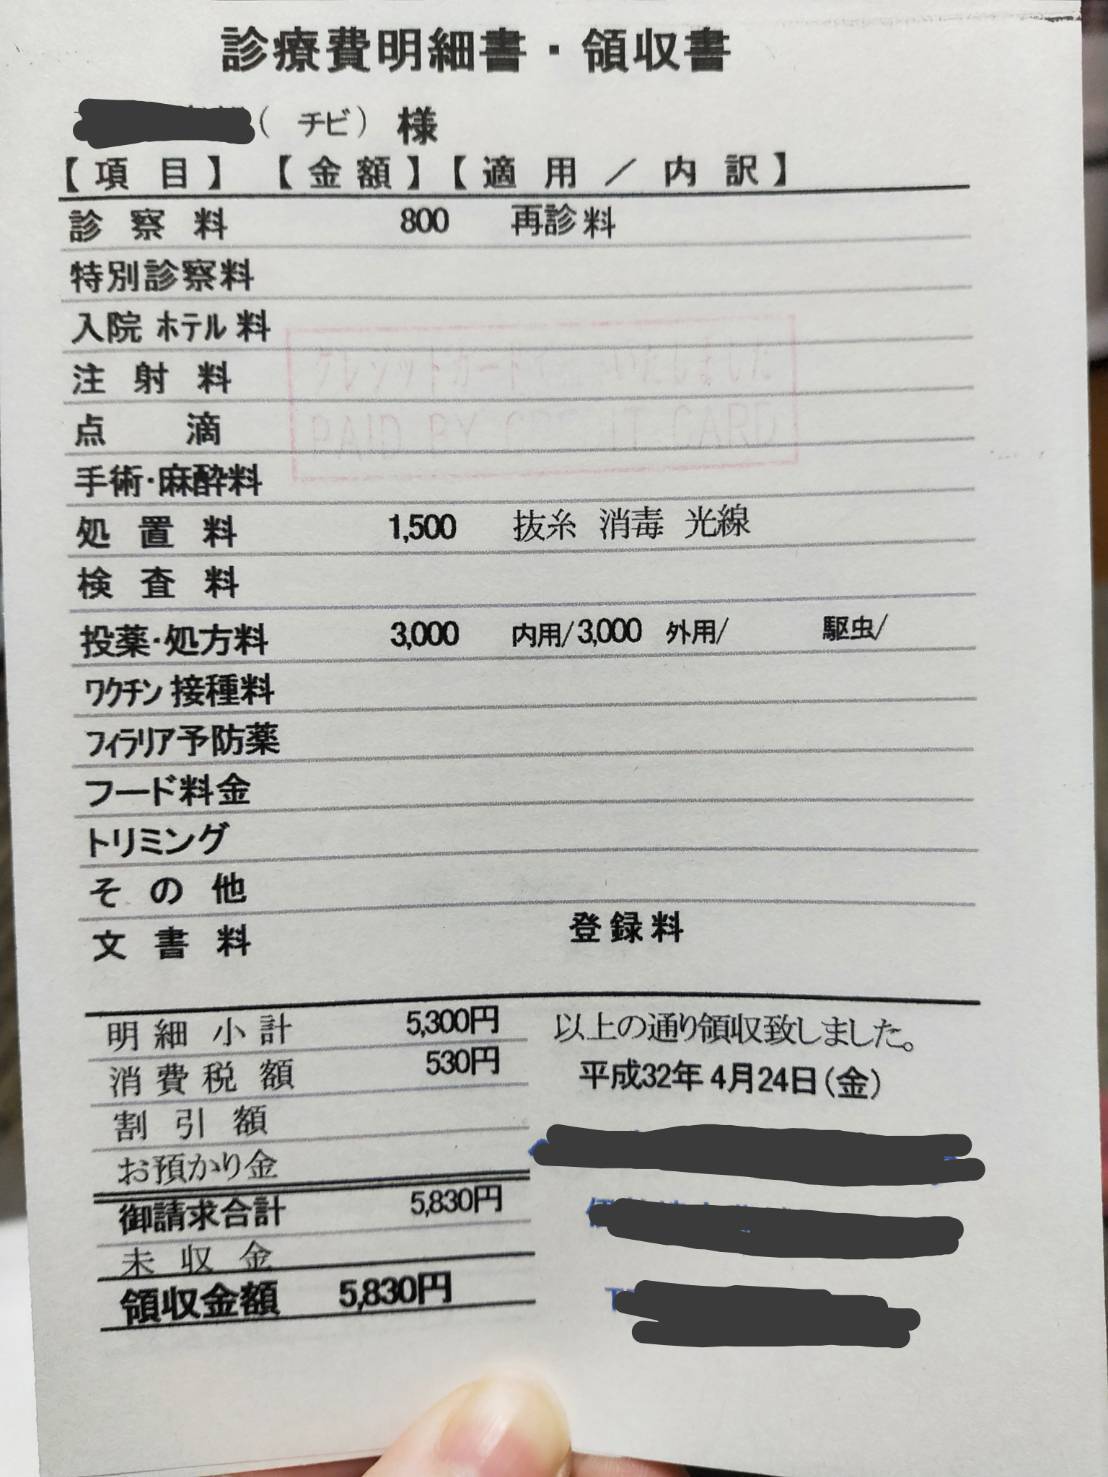 診療費明細書・領収書
( チビ) 様
【項 目】 【金 額】【適 用 / 内 訳】
診 察 料 800 再診料
特別診察料
入院 ホテル 料
注 射 料
点 滴
手術・麻酔料
クレジットカード いたしました
PAID BY CREDIT CARD
処 置 料 1,500 抜糸 消毒 光線
検 査 料
投薬・処方料 3,000 内用/3,000 外用/ 駆虫/
ワクチン 接種料
フィラリア予防薬
フード料金
トリミング
そ の 他
文 書 料 登録料
明 細 小 計 5,300円 以上の通り領収致しました。
消 費 税 額 530円 平成32年 4月24日(金)
割 引 額
お預かり金
御請求合計 5,830円
未 収 金
領収金額 5,830円